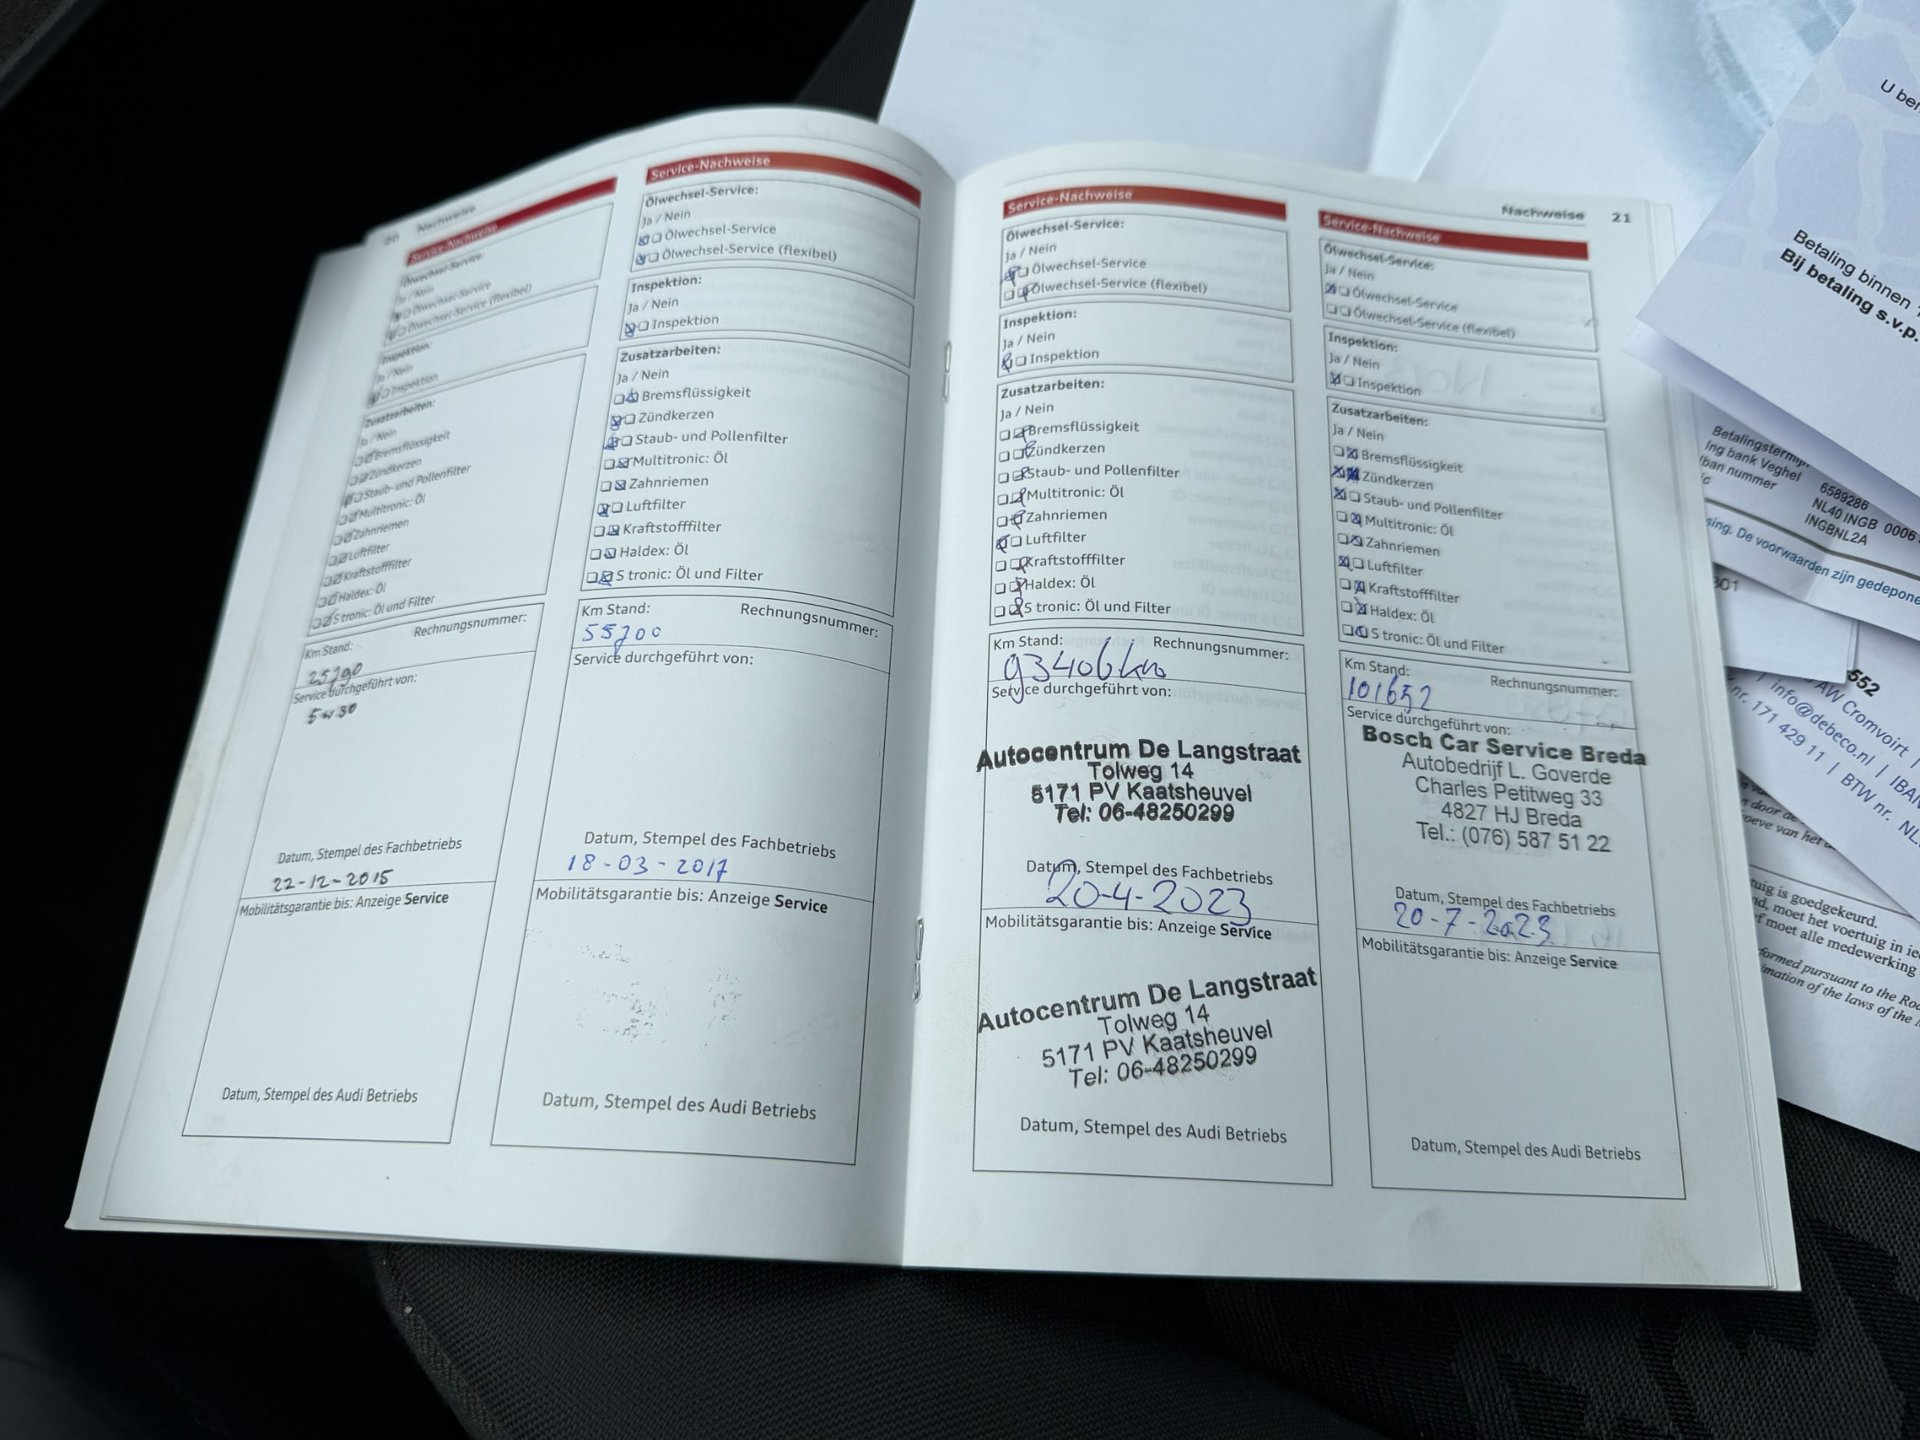 20 Nachweise
Service-Nachweise
Ölwechsel-Service:
Ja / Nein
Ölwechsel-Service
Ölwechsel-Service (flexibel)
Inspektion:
Ja / Nein
Inspektion
Zusatzarbeiten:
Ja / Nein
Bremsflüssigkeit
Zündkerzen
Staub- und Pollenfilter
Multitronic: Öl
Zahnriemen
Luftfilter
Kraftstofffilter
Haldex: Öl
S tronic: Öl und Filter
Km Stand:
Rechnungsnummer:
Service durchgeführt von:
5w30
Datum, Stempel des Fachbetriebs
22-12-2015
Mobilitätsgarantie bis: Anzeige Service
Datum, Stempel des Audi Betriebs
Service-Nachweise
Ölwechsel-Service:
Ja / Nein
Ölwechsel-Service
Ölwechsel-Service (flexibel)
Inspektion:
Ja / Nein
Inspektion
Zusatzarbeiten:
Ja / Nein
Bremsflüssigkeit
Zündkerzen
Staub- und Pollenfilter
Multitronic: Öl
Zahnriemen
Luftfilter
Kraftstofffilter
Haldex: Öl
S tronic: Öl und Filter
Km Stand:
Rechnungsnummer:
Service durchgeführt von:
Datum, Stempel des Fachbetriebs
18-03-2017
Mobilitätsgarantie bis: Anzeige Service
Datum, Stempel des Audi Betriebs
Service-Nachweise
Ölwechsel-Service:
Ja / Nein
Ölwechsel-Service
Ölwechsel-Service (flexibel)
Inspektion:
Ja / Nein
Inspektion
Zusatzarbeiten:
Ja / Nein
Bremsflüssigkeit
Zündkerzen
Staub- und Pollenfilter
Multitronic: Öl
Zahnriemen
Luftfilter
Kraftstofffilter
Haldex: Öl
S tronic: Öl und Filter
Km Stand:
Rechnungsnummer:
93406 km
Service durchgeführt von:
Autocentrum De Langstraat
Tolweg 14
5171 PV Kaatsheuvel
Tel: 06-48250299
Datum, Stempel des Fachbetriebs
20-4-2023
Mobilitätsgarantie bis: Anzeige Service
Autocentrum De Langstraat
Tolweg 14
5171 PV Kaatsheuvel
Tel: 06-48250299
Datum, Stempel des Audi Betriebs
Nachweise 21
Service-Nachweise
Ölwechsel-Service:
Ja / Nein
Ölwechsel-Service
Ölwechsel-Service (flexibel)
Inspektion:
Ja / Nein
Inspektion
Zusatzarbeiten:
Ja / Nein
Bremsflüssigkeit
Zündkerzen
Staub- und Pollenfilter
Multitronic: Öl
Zahnriemen
Luftfilter
Kraftstofffilter
Haldex: Öl
S tronic: Öl und Filter
Km Stand:
Rechnungsnummer:
101652
Service durchgeführt von:
Bosch Car Service Breda
Autobedrijf L. Goverde
Charles Petitweg 33
4827 HJ Breda
Tel.: (076) 587 51 22
Datum, Stempel des Fachbetriebs
20-7-2023
Mobilitätsgarantie bis: Anzeige Service
Datum, Stempel des Audi Betriebs
U
Betaling binnen
Bij betaling s.v.p.
Ing bank Veghel 6589286
NL40 INGB 0006
INGBNL2A
De voorwaarden zijn
552
AW Cromvoirt |
| info@debeco.nl | IBAN
nr. 171 429 11 | BTW nr. NL
door de
van het
is goedgekeurd.
moet het voertuig in
moet alle medewerking
pursuant to the
of the laws of the